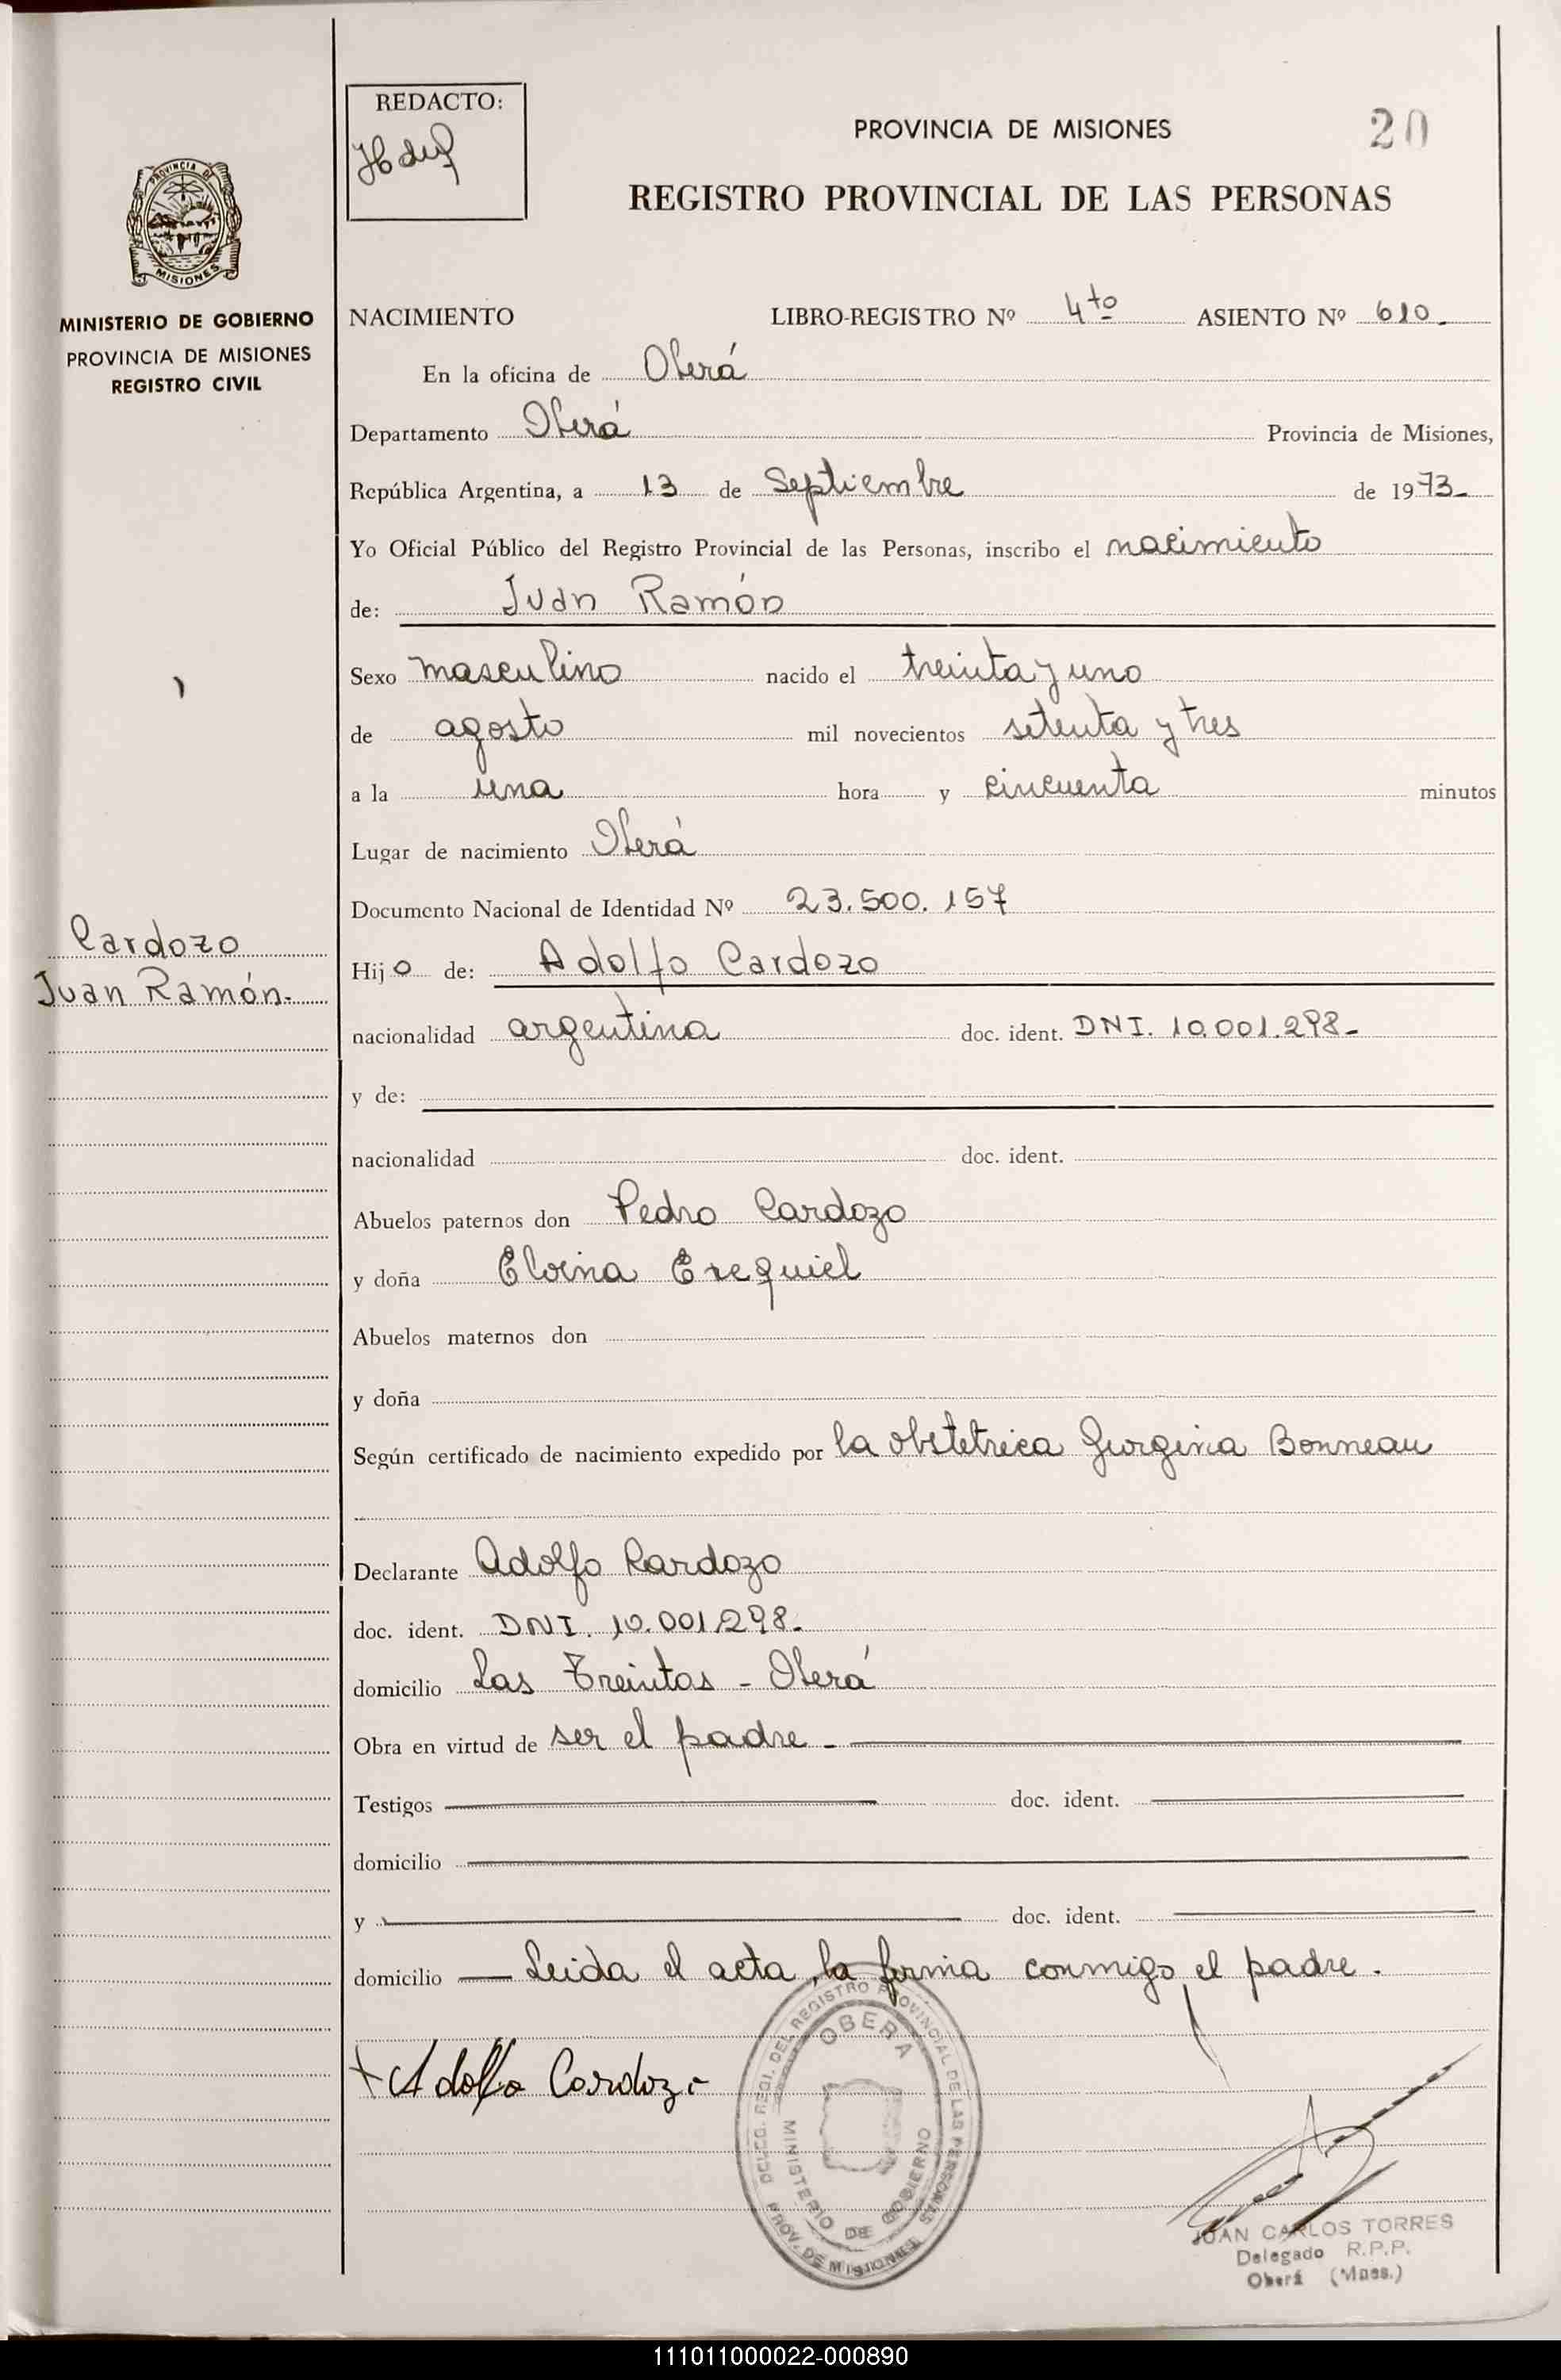 REDACTO:
PROVINCIA DE MISIONES
20
REGISTRO PROVINCIAL DE LAS PERSONAS
PROVINCIA DE
MISIONES
MINISTERIO DE GOBIERNO
PROVINCIA DE MISIONES
REGISTRO CIVIL
NACIMIENTO LIBRO-REGISTRO Nº 4to ASIENTO Nº 610.
En la oficina de Oberá
Departamento Oberá Provincia de Misiones,
República Argentina, a 13 de Septiembre de 1973-
Yo Oficial Público del Registro Provincial de las Personas, inscribo el nacimiento
de: Juan Ramón
Sexo masculino nacido el treinta y uno
de agosto mil novecientos setenta y tres
a la una hora y cincuenta minutos
Lugar de nacimiento Oberá
Documento Nacional de Identidad Nº 23.500.157
Cardozo
Juan Ramón.
Hijo de: Adolfo Cardozo
nacionalidad argentina doc. ident. DNI. 10.001.298-
y de:
nacionalidad doc. ident.
Abuelos paternos don Pedro Cardozo
y doña Eloina Exequiel
Abuelos maternos don
y doña
Según certificado de nacimiento expedido por la obstetrica Bonneau
Declarante Adolfo Cardozo
doc. ident. DNI. 10.001.298.
domicilio Las Treintas - Oberá
Obra en virtud de ser el padre -
Testigos doc. ident.
domicilio
y doc. ident.
domicilio — Leida el acta, la firma conmigo el padre.
Adolfo Cardozo
DELEG. REGI. DEL REGISTRO PROVINCIAL DE LAS PERSONAS
OBERA
MINISTERIO DE GOBIERNO
PROV. DE MISIONES
JUAN CARLOS TORRES
Delegado R.P.P.
Oberá (Mnes.)
111011000022-000890